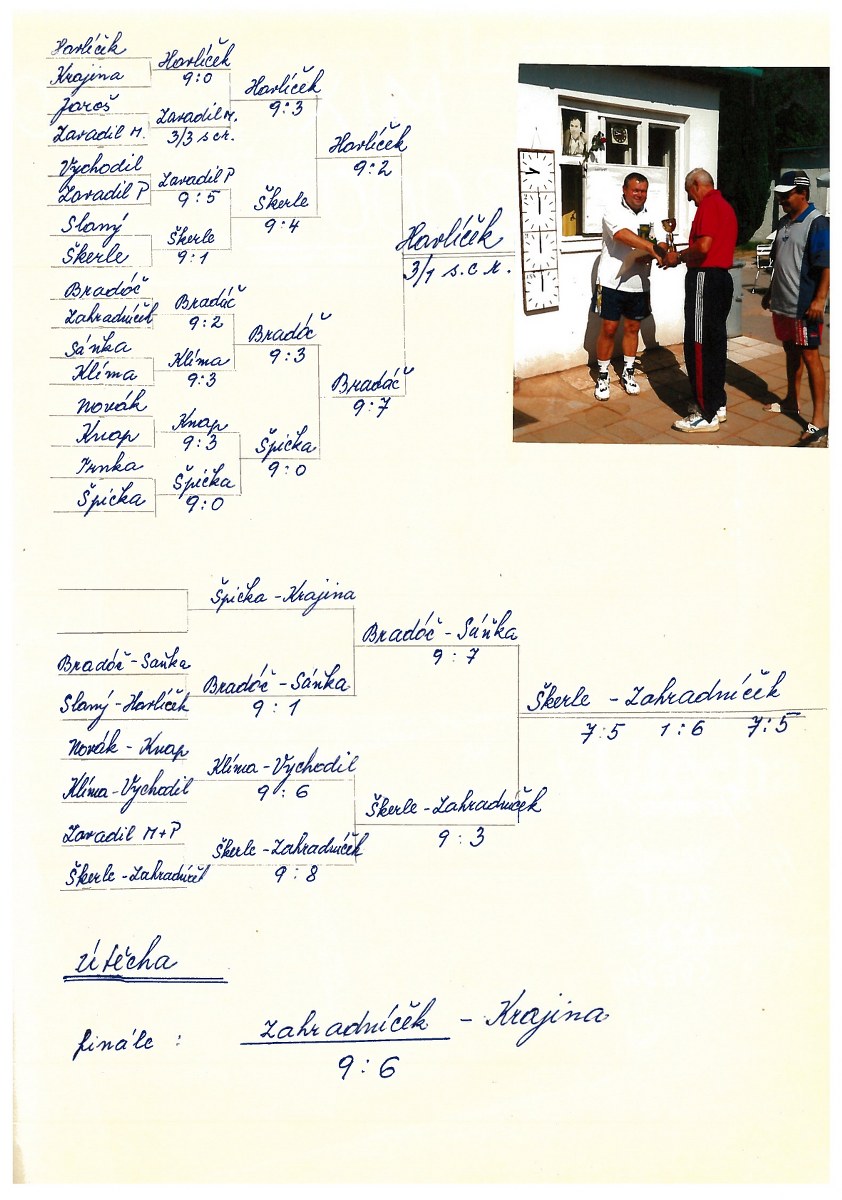 Havlíček
Krajina
Jaroš
Zavadil M.
Vychodil
Zavadil P
Slaný
Škerle
Bradáč
Zahradníček
Sáňka
Klíma
Novák
Knap
Trnka
Špička
Havlíček
9:0
Zavadil M.
3/3 scr.
Zavadil P
9:5
Škerle
9:1
Bradáč
9:2
Klíma
9:3
Knap
9:3
Špička
9:0
Havlíček
9:3
Škerle
9:4
Bradáč
9:3
Špička
9:0
Havlíček
9:2
Bradáč
9:7
Havlíček
3/1 s.c.r.
Bradáč - Saňka
Slaný - Havlíček
Novák - Knap
Klíma - Vychodil
Zavadil M+P
Škerle - Zahradníček
Špička - Krajina
Bradáč - Sáňka
9:1
Klíma - Vychodil
9:6
Škerle - Zahradníček
9:8
Bradáč - Sáňka
9:7
Škerle - Zahradníček
9:3
Škerle - Zahradníček
7:5 1:6 7:5
útěcha
finále : Zahradníček - Krajina
9:6